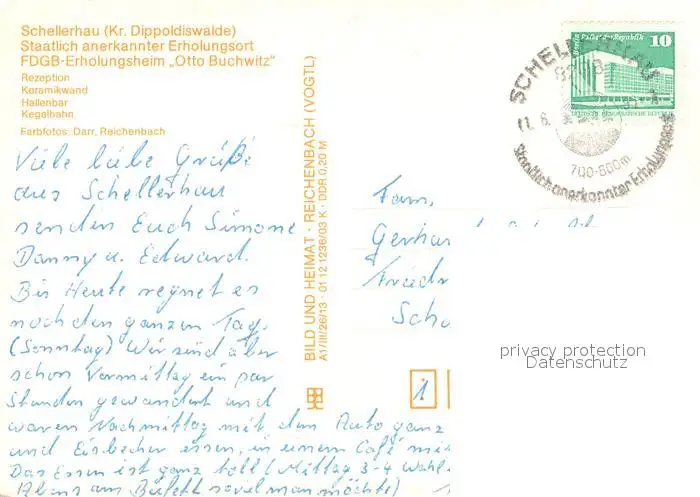 Schellerhau (Kr. Dippoldiswalde)
Staatlich anerkannter Erholungsort
FDGB-Erholungsheim „Otto Buchwitz"
Rezeption
Keramikwand
Hallenbar
Kegelbahn
Farbfotos: Darr, Reichenbach
Viele liebe Grüße
aus Schellerhau
senden Euch Simone
Danny u. Edward.
Bis Heute regnet es
noch den ganzen Tag.
(Sonntag) Wir sind aber
schon Vormittag ein par
Stunden gewandert und
waren Nachmittag mit dem Auto ganz
und Eisbecher essen, in einem Café mit
Das Essen ist ganz toll (Mittag 3-4 Wahl
Abens am Büfett soviel man möchte)
BILD UND HEIMAT · REICHENBACH (VOGTL)
A1/III/26/13 · 01 12 1236/03 K · DDR 0,20 M
Fam.
Gerhar
Friedr
Scho
1
Berlin Palast der Republik
10
SCHELLERHAU
700-800m
Staatlich anerkannter Erholungsort
privacy protection
Datenschutz